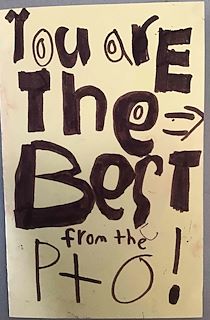 You arE
The ⇒
BesT
from the
P+O!